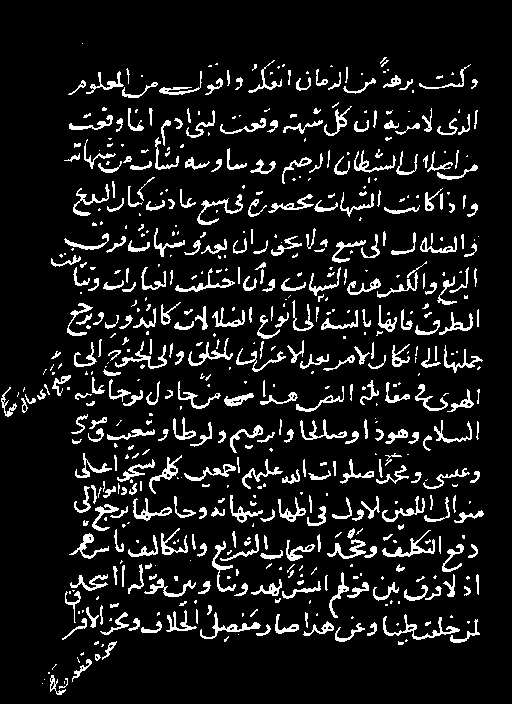 وكنت برهة من الزمان اتفكر واقول من المعلوم
الذى لامرية ان كل شبهة وقعت لبنى ادم انما وقعت
من اضلال الشيطان الرجيم ووساوسه نشأت من شبهاته
واذا كانت الشبهات محصورة فى سبع عادت كبار البدع
والضلال الى سبع ولا يجوز ان يعدو شبهات فرق
الزيغ والكفر هذه الشبهات وان اختلفت العبارات وتباينت
الطرق فانها بالنسبة الى انواع الضلالات كالبذور ويرجع
جملتها الى انكار الامر بعد الاعتراف بالخلق والى الجنوح الى
الهوى فى مقابلة النص هذا من جادل نوحا عليه
السلام وهودا وصالحا وابرهيم ولوطا وشعيب وموسى
وعيسى ومحمدا صلوات الله عليهم اجمعين كلهم نسجوا على
منوال اللعين الاول فى اظهار شبهاته وحاصلها يرجع الى
دفع التكليف وجحد اصحاب الشرايع والتكاليف باسرهم
اذ لا فرق بين قولهم ابشر يهدوننا وبين قوله أاسجد
لمن خلقت طينا وعن هذا صار مفصل الخلاف ومحز الافتراق